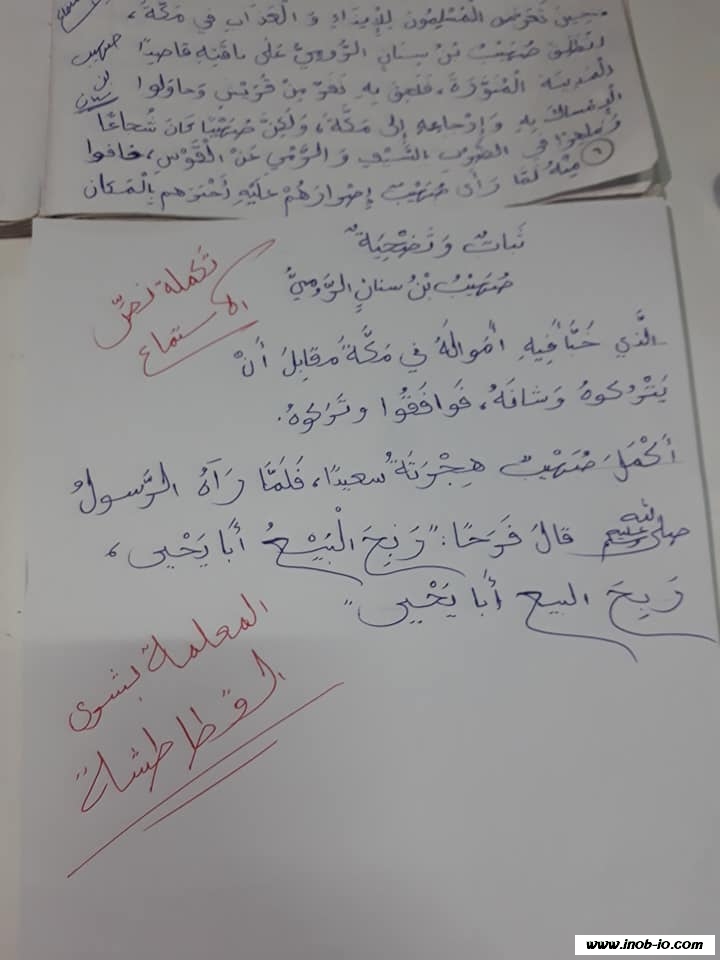 حينَ تَعَرَّضَ الْمُسْلِمُونَ لِلْإِيذَاءِ وَ الْعَذَابِ فِي مَكَّةَ،
انْطَلَقَ صُهَيْبُ بْنُ سِنَانٍ الرُّومِيُّ عَلَى نَاقَتِهِ قَاصِدًا
صهيب بن سنان
الْمَدِينَةَ الْمُنَوَّرَةَ، فَلَحِقَ بِهِ نَفَرٌ مِنْ قُرَيْشٍ وَحَاوَلُوا
الْإِمْسَاكَ بِهِ وَ إِرْجَاعِهِ إِلَى مَكَّةَ، وَلَكِنَّ صُهَيْبًا كَانَ شُجَاعًا
في الضَّرْبِ السَّيْفِ وَ الرَّمْيِ عَنْ الْقَوْسِ، فخافوا
مِنْهُ لَمَّا رَأَى صُهَيْبٌ إِصْرَارَهُمْ عَلَيْهِ أَخْبَرَهم بِالْمَكَانِ
ثَباتٌ وَ تَضْحِيَةٌ
صُهَيْبُ بْنُ سنانٍ الرُّومِيُّ
تكملة نصِّ
الاستماع
الَّذي خَبَّأَ فيهِ أَموالَهُ في مَكَّةَ مُقابِلَ أَنْ
يَتْرُكوهُ وَشَأنَهُ، فَوافَقُوا وتَرَكوهُ.
أَكْمَلَ صُهَيْبٌ هِجْرَتَهُ سعيدًا، فَلَمَّا رَآهُ الرَّسولُ
صلى الله عليه وسلم قالَ فَرَحًا: "رَبِحَ الْبَيْعُ أَبا يَحْيى،
رَبِحَ البيع أَبا يَحْيى"
المعلمة بشرى
القطاطشة
www.inob-io.com